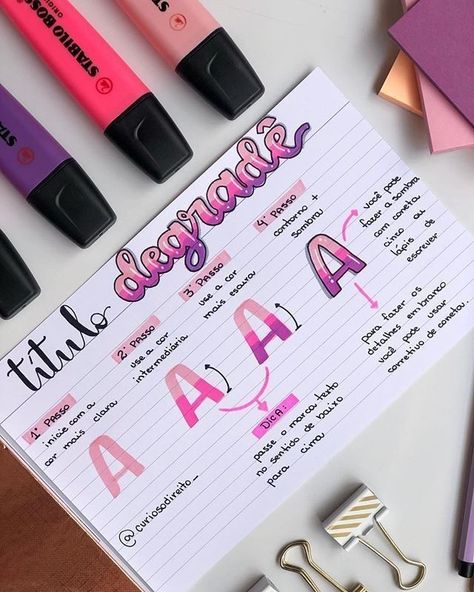 STABILO BOSS
ORIGINAL
STABILO BOSS
ORIGI
STA
título
degradê
1º PASSO
inicie com a
cor mais clara
2º PASSO
use a cor
intermediária
3º PASSO
use a cor
mais escura
4º PASSO
contorno +
sombra!
A
A
A
A
você pode
fazer a sombra
com caneta
cinza ou
lápis de
escrever
para fazer os
detalhes em branco
você pode usar
corretivo de caneta!
DICA:
passe o marca texto
no sentido de baixo
para cima
@curiosodireito_